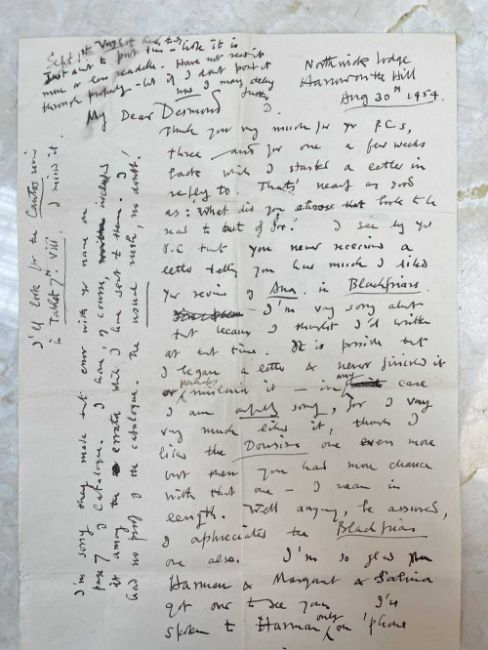 Sept 1st Very sorry
Just about to post this – hope it is
more or less readable. Have not read it
through properly – but if I don't post it
now I may delay
further
Northwick Lodge
Harrow on the Hill
Aug 30th 1954.
My Dear Desmond
Thank you very much for yr P.C.s,
three – and for one a few weeks
back wh I started a letter in
reply to. That's nearly as good
as: 'What did you choose that book to be
read to out of for?' I see by yr
P.C that you never received a
letter telling you how much I liked
yr review of Ana. in Blackfriars.
– I'm very sorry about
that because I thought I'd written
at that time. It is possible that
I began a letter & never finished it
or perhaps mislaid it – in any case
I am awfully sorry, for I very
very much liked it, though I
liked the Downside one even more
but then you had more chance
with that one – I mean in
length. Well anyway, be assured,
I appreciated the Blackfriars
one also. I'm so glad you
Harman & Margaret & Sabina
got over to see you. I've
spoken to Harman only on 'phone
I'll look for the Cantos review
in Tablet 7th VIII. I missed it.
I'm sorry they made that error with yr name on
page 7 of Catalogue. I have, of course, included
it among the errata which I have sent to them. I
had no proof of the catalogue. The usual rush, no doubt!